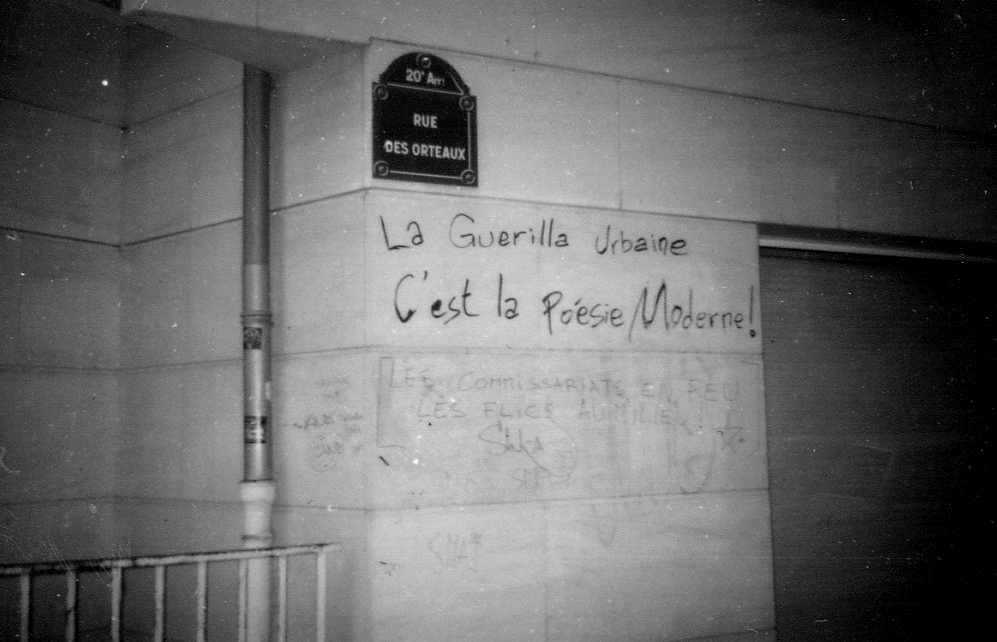 20e Arrt
RUE
DES ORTEAUX
La Guerilla Urbaine
C'est la Poésie Moderne!
LES COMMISSARIATS EN FEU
LES FLICS AU MILIEU